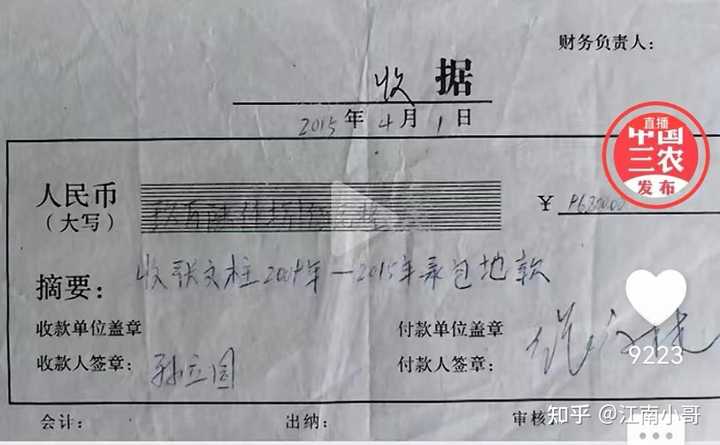 财务负责人：
收 据
2015 年 4 月 1 日
直播
中国
三农
发布
人民币
（大写）
¥
摘要： 收张文柱2004年—2015年承包地款
收款单位盖章 付款单位盖章
收款人签章： 孙立国 付款人签章：
9223
会计： 出纳： 审核：
知乎 @江南小哥